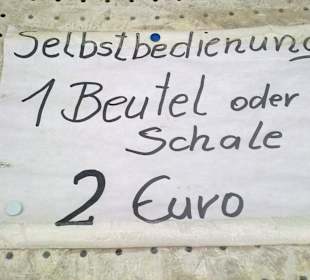 Selbstbedienung
1 Beutel oder
Schale
2 Euro